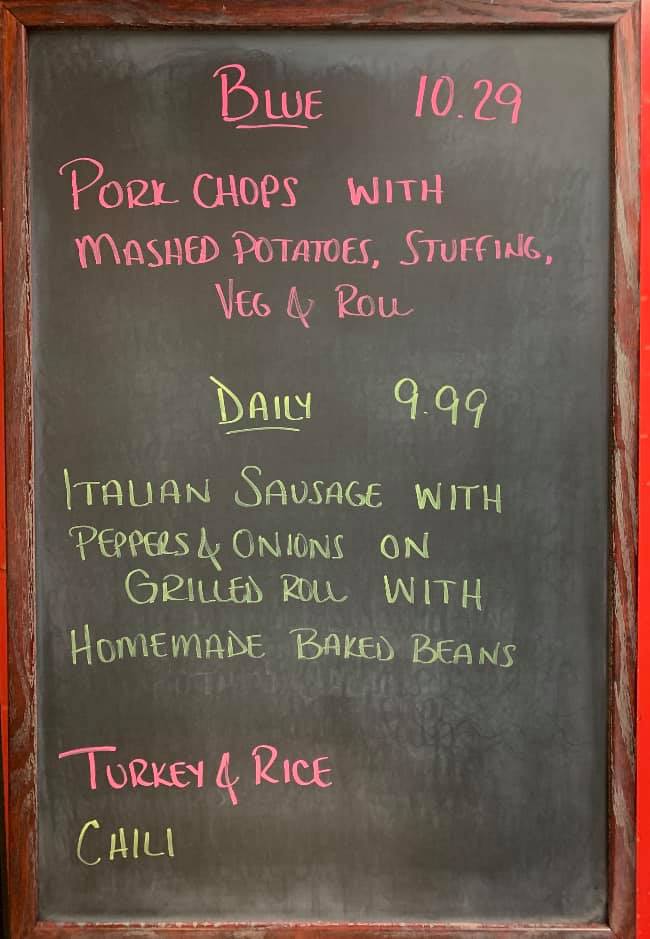 BLUE 10.29
PORK CHOPS WITH
MASHED POTATOES, STUFFING,
VEG & ROLL
DAILY 9.99
ITALIAN SAUSAGE WITH
PEPPERS & ONIONS ON
GRILLED ROLL WITH
HOMEMADE BAKED BEANS
TURKEY & RICE
CHILI